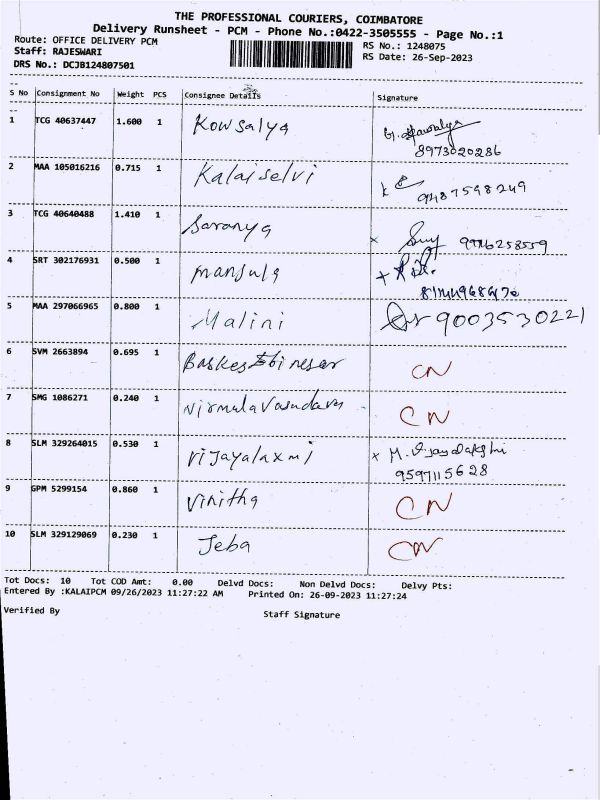 THE PROFESSIONAL COURIERS, COIMBATORE
Delivery Runsheet - PCM - Phone No.:0422-3505555 - Page No.:1
Route: OFFICE DELIVERY PCM
RS No.: 1248075
Staff: RAJESWARI
RS Date: 26-Sep-2023
DRS No.: DCJB124807501
S No Consignment No Weight PCS Consignee Details Signature
1 TCG 40637447 1.600 1 Kowsalya
8973020286
2 MAA 105016216 0.715 1 Kalaiselvi
9487598249
3 TCG 40640488 1.410 1 Saranya
x 9976258559
4 SRT 302176931 0.500 1 manjula
5 MAA 297066965 0.800 1 Malini 9003530221
6 SVM 2663894 0.695 1 CN
7 SMG 1086271 0.240 1 Nirmala Vasudavan CN
8 SLM 329264015 0.530 1 Vijayalaxmi x M. Vijayalakshmi
9597115628
9 GPM 5299154 0.860 1 Vinitha CN
10 SLM 329129069 0.230 1 Jeba CN
Tot Docs: 10 Tot COD Amt: 0.00 Delvd Docs: Non Delvd Docs: Delvy Pts:
Entered By :KALAIPCM 09/26/2023 11:27:22 AM Printed On: 26-09-2023 11:27:24
Verified By Staff Signature